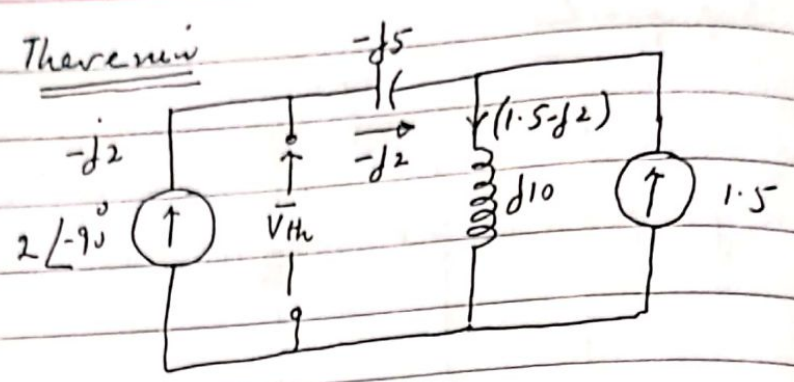 Thevenin
-j5
-j2
(1.5-j2)
-j2
2∠-90°
V̄th
j10
1.5